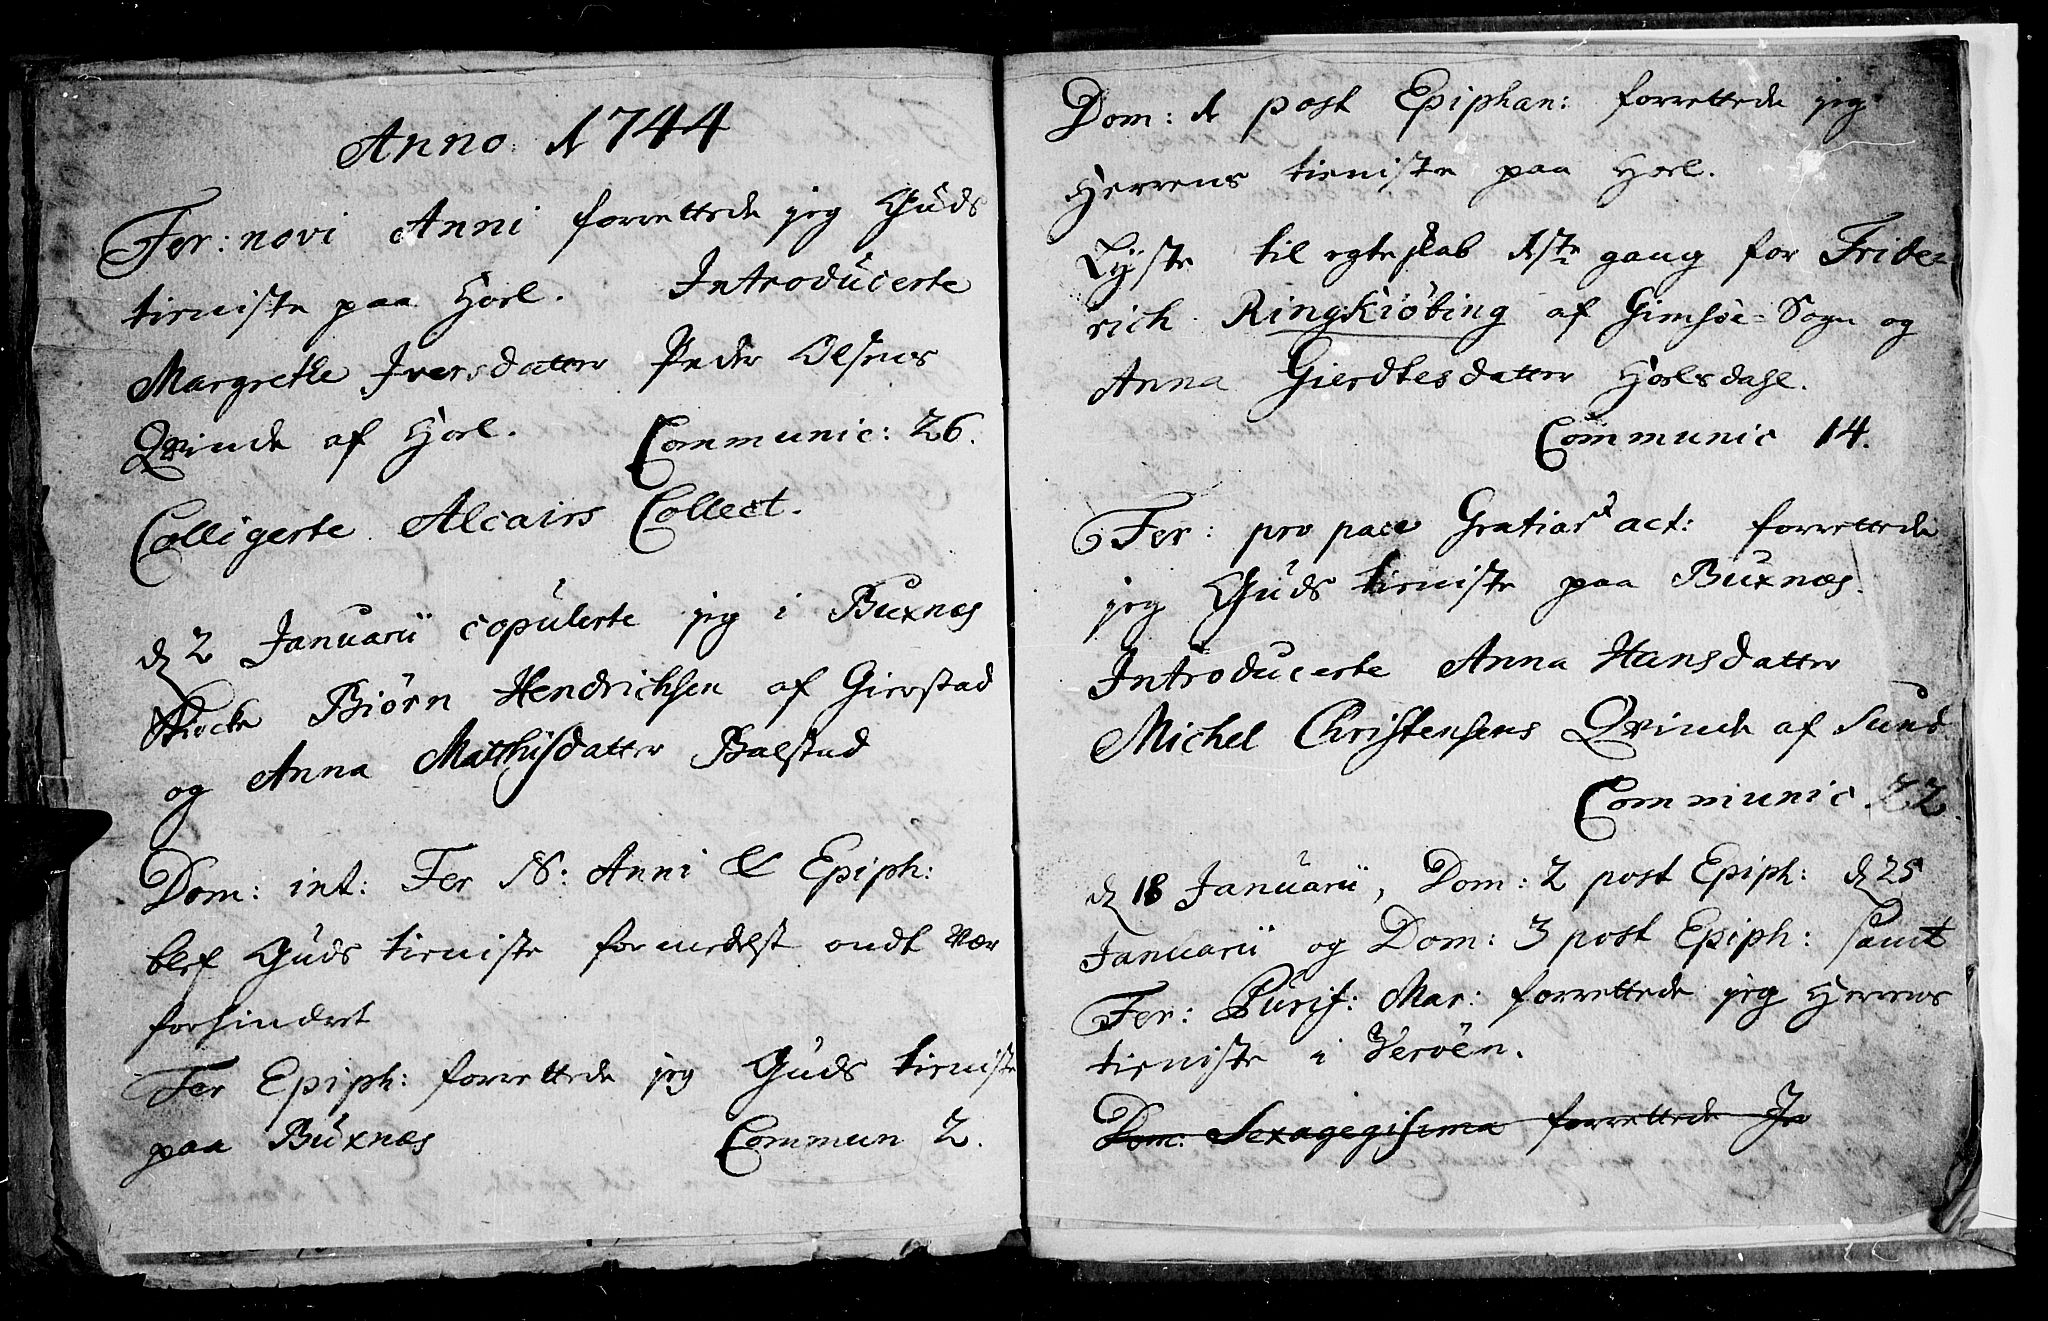 Anno 1744
Fer: novi Anni forrettede jeg Guds
tieniste paa Horl. Introducerte
Margrethe Iversdatter Peder Olsens
Qvinde af Horl. Communic: 26.
Colligerte Alcairs Collect.
d 2 Januarii copulerte jeg i Buxnæs
Kircke Biörn Hendrichsen af Gierstad
og Anna Matthisdatter Balstad
Dom: int: Fer N: Anni & Epiph:
blef Guds tieniste formedelst ondt Vær
forhindret
Fer Epiph: forrettede jeg Guds tieniste
paa Buxnæs Commun 2.
Dom: 1 post Epiphan: forrettede jeg
Herrens tieniste paa Horl.
Lyste til egteskab 1ste gang for Fride=
rich Ringkiöbing af Gimsöe=Sogn og
Anna Gierdtesdatter Horlsdahl.
Communic 14.
Fer: pro pace Gratiar act: forrettede
jeg Guds tieniste paa Buxnæs.
Introducerte Anna Hansdatter
Michel Christensens Qvinde af Sund
Communic 22
d 18 Januarii, Dom: 2 post Epiph: d 25
Januarii og Dom: 3 post Epiph: samt
Fer: Purif: Mar: forrettede jeg Herrens
tieniste i Veröen.
Dom: Sexagegisima forrettede Je